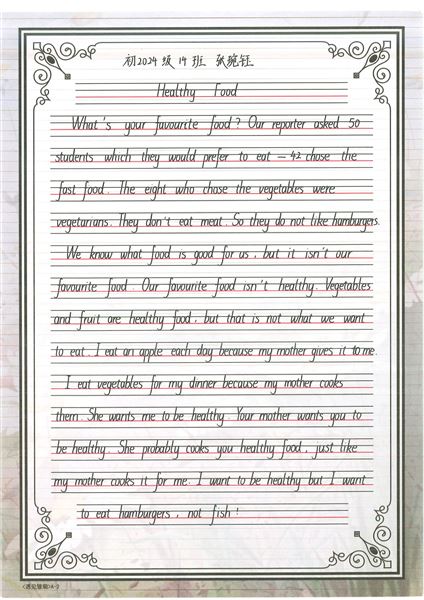 初2024级19班 张琬钰
Healthy Food
What's your favourite food? Our reporter asked 50
students which they would prefer to eat — 42 chose the
fast food. The eight who chose the vegetables were
vegetarians. They don't eat meat. So they do not like hamburgers.
We know what food is good for us, but it isn't our
favourite food. Our favourite food isn't healthy. Vegetables
and fruit are healthy food, but that is not what we want
to eat. I eat an apple each day because my mother gives it to me.
I eat vegetables for my dinner because my mother cooks
them. She wants me to be healthy. Your mother wants you to
be healthy. She probably cooks you healthy food, just like
my mother cooks it for me. I want to be healthy but I want
to eat hamburgers, not fish!